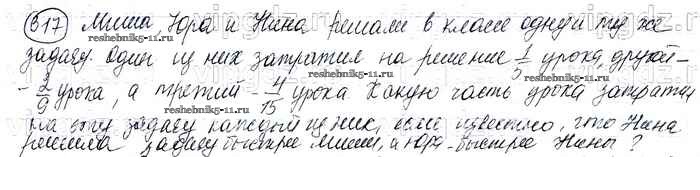 317 Миша, Юра и Нина решали в классе одну и ту же
задачу. Один из них затратил на решение 1/5 урока, другой -
reshebnik5-11.ru reshebnik5-11.ru
- 2/9 урока, а третий - 4/15 урока Какую часть урока затратил
на эту задачу каждый из них, если известно, что Нина
решила задачу быстрее Миши, а Юра - быстрее Нины?
reshebnik5-11.ru reshebnik5-11.ru